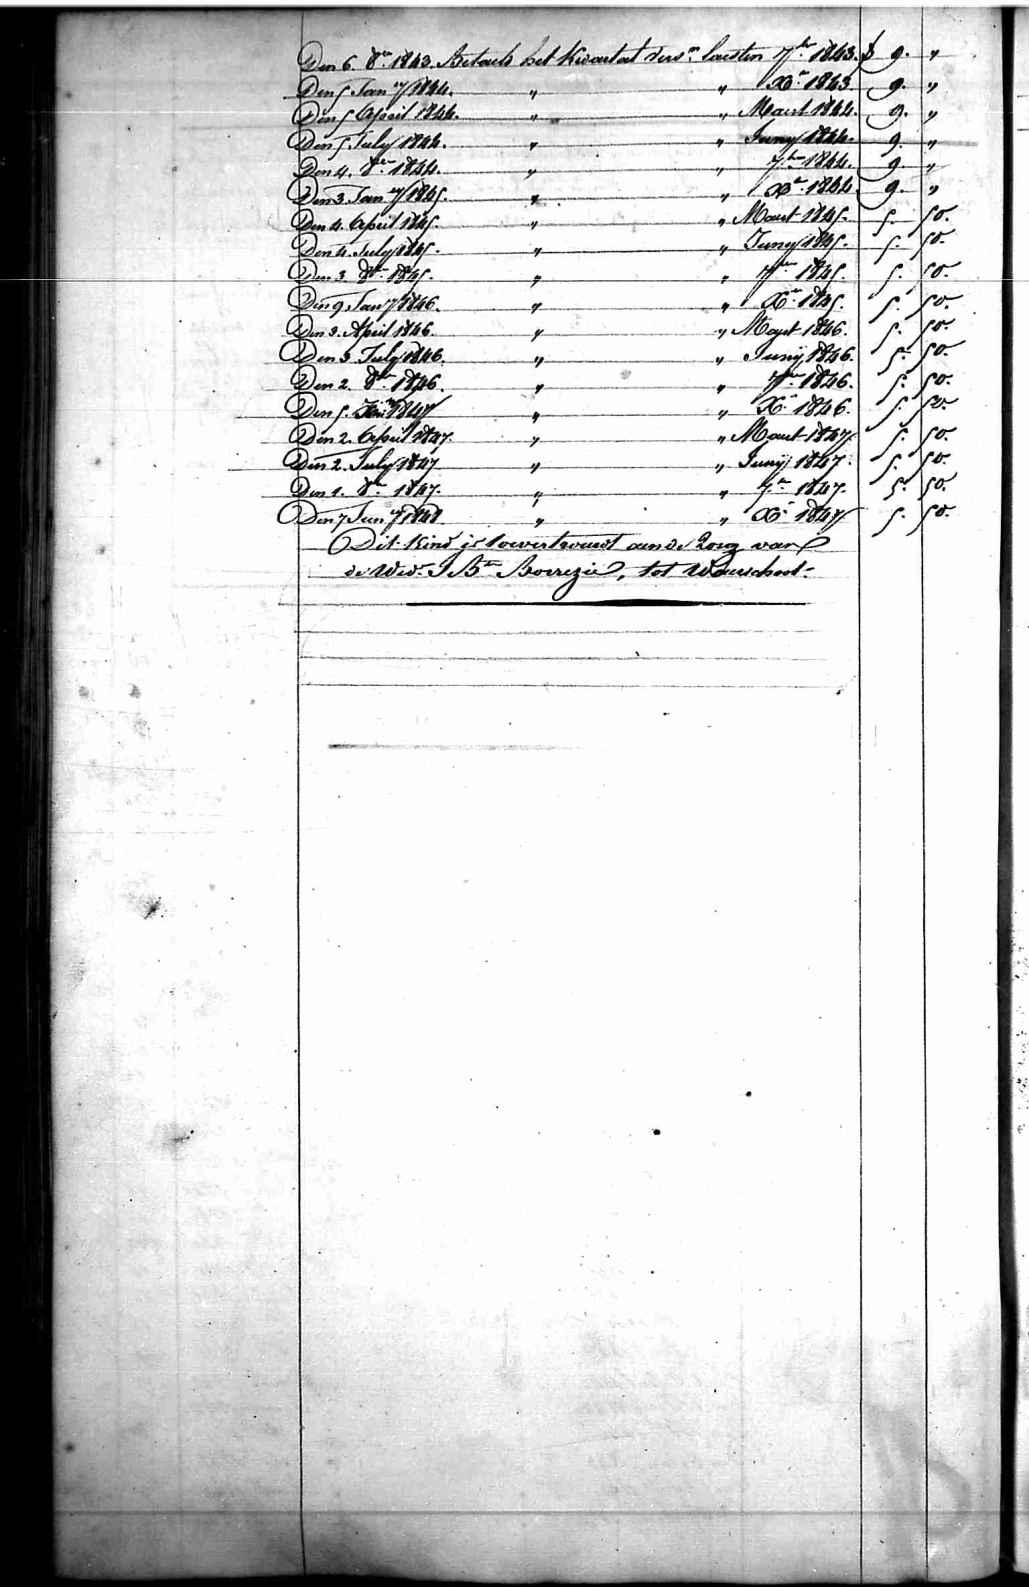 Den 6. 8re 1843. Betaelt het Kwartael vers.n laesten 7bre 1843. f 9. "
Den 5 Jan.ry 1844. " " Xre 1843 9. "
Den 5 April 1844. " " Maert 1844. 9. "
Den 5. July 1844. " " Juny 1844. 9. "
Den 4. 8re 1844. " " 7bre 1844. 9. "
Den 3. Jan.ry 1845. " " Xre 1844. 9. "
Den 4. April 1845. " " Maert 1845. 5. 50.
Den 4. July 1845. " " Juny 1845. 5. 50.
Den 3. 8re 1845. " " 7re 1845. 5. 50.
Den 9. Jan.ry 1846. " " Xre 1845. 5. 50.
Den 3. April 1846. " " Maert 1846. 5. 50.
Den 3 July 1846. " " Juny 1846. 5. 50.
Den 2. 8re 1846. " " 7re 1846. 5. 50.
Den 5. 1847 " " Xre 1846. 5. 50.
Den 2. April 1847. " " Maert 1847. 5. 50.
Den 2. July 1847 " " Juny 1847. 5. 50.
Den 1. 8re 1847. " " 7re 1847. 5. 50.
Den 7 Jan.ry 1848. " " Xre 1847 5. 50.
Dit Kind is toevertrouwt aen de Zorg van
de Wed.e J Bte tot Waerschoot.